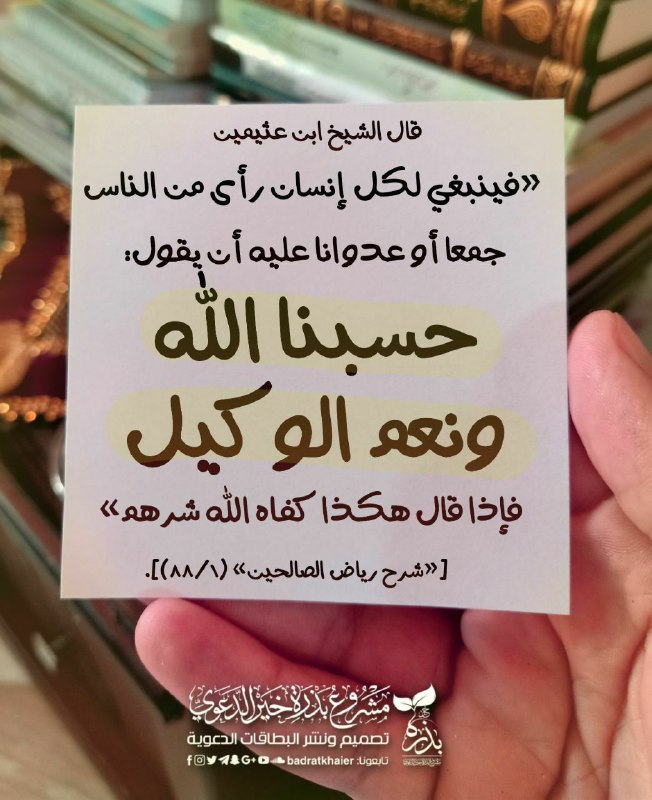 قال الشيخ ابن عثيمين
«فينبغي لكل إنسان رأى من الناس
جمعا أو عدوانا عليه أن يقول:
حسبنا الله
ونعم الوكيل
فإذا قال هكذا كفاه الله شرهم»
[«شرح رياض الصالحين» (١/٨٨)].
مشروع بذرة خير الدعوي
تصميم ونشر البطاقات الدعوية
تابعونا: badratkhaier
بذرة